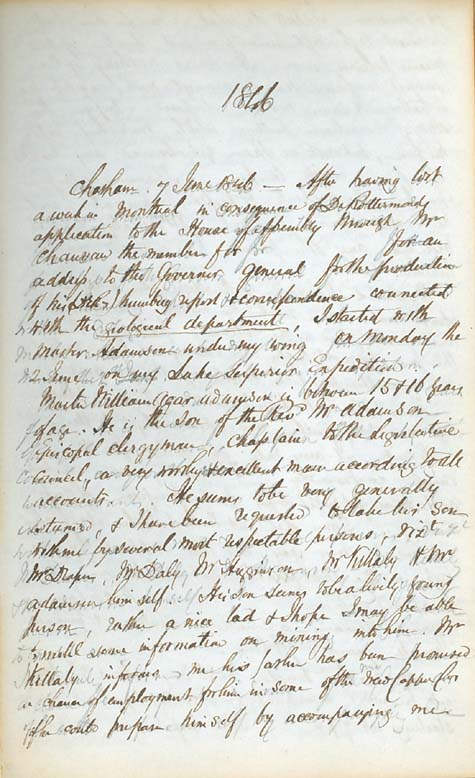 1846
Chatham 7 June 1846 — After having lost
a week in Montreal in consequence of De Rottermond's
application to the House of Assembly through Mr
Chauvau the member for for an
address to the Governor general for the production
of his humbug report & correspondence connected
with the geological department, I started with
Master Adamson under my wing on Monday the
2 June on my Lake Superior Expedition.
Master William Agar Adamson is between 15 & 16 years
of age. He is the Son of the Revd Mr Adamson
Episcopal clergyman, Chaplain to the legislative
Council, a very worthy & excellent man according to all
accounts. He seems to be very generally
esteemed, & I have been requested to take his son
with me by several most respectable persons, vizt
Mr Draper, Mr Daly, Mr Higginson, Mr Killaly & Mr
Adamson himself. His son seems to be a lively young
person, rather a nice lad & I hope I may be able
to instil some information on mining into him. Mr
Killaly informs me his father has been promised
a chance of employment for him in some of the new Copper Cos
if he could prepare himself by accompanying me